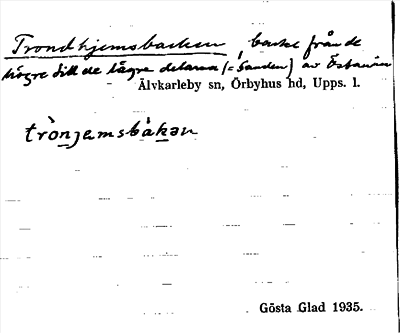 Trondhjemsbacken, backe från de
högre till de lägre delarna (= Sanden) av Östanån
Älvkarleby sn, Örbyhus hd, Upps. l.
trònjemsbàkan
Gösta Glad 1935.